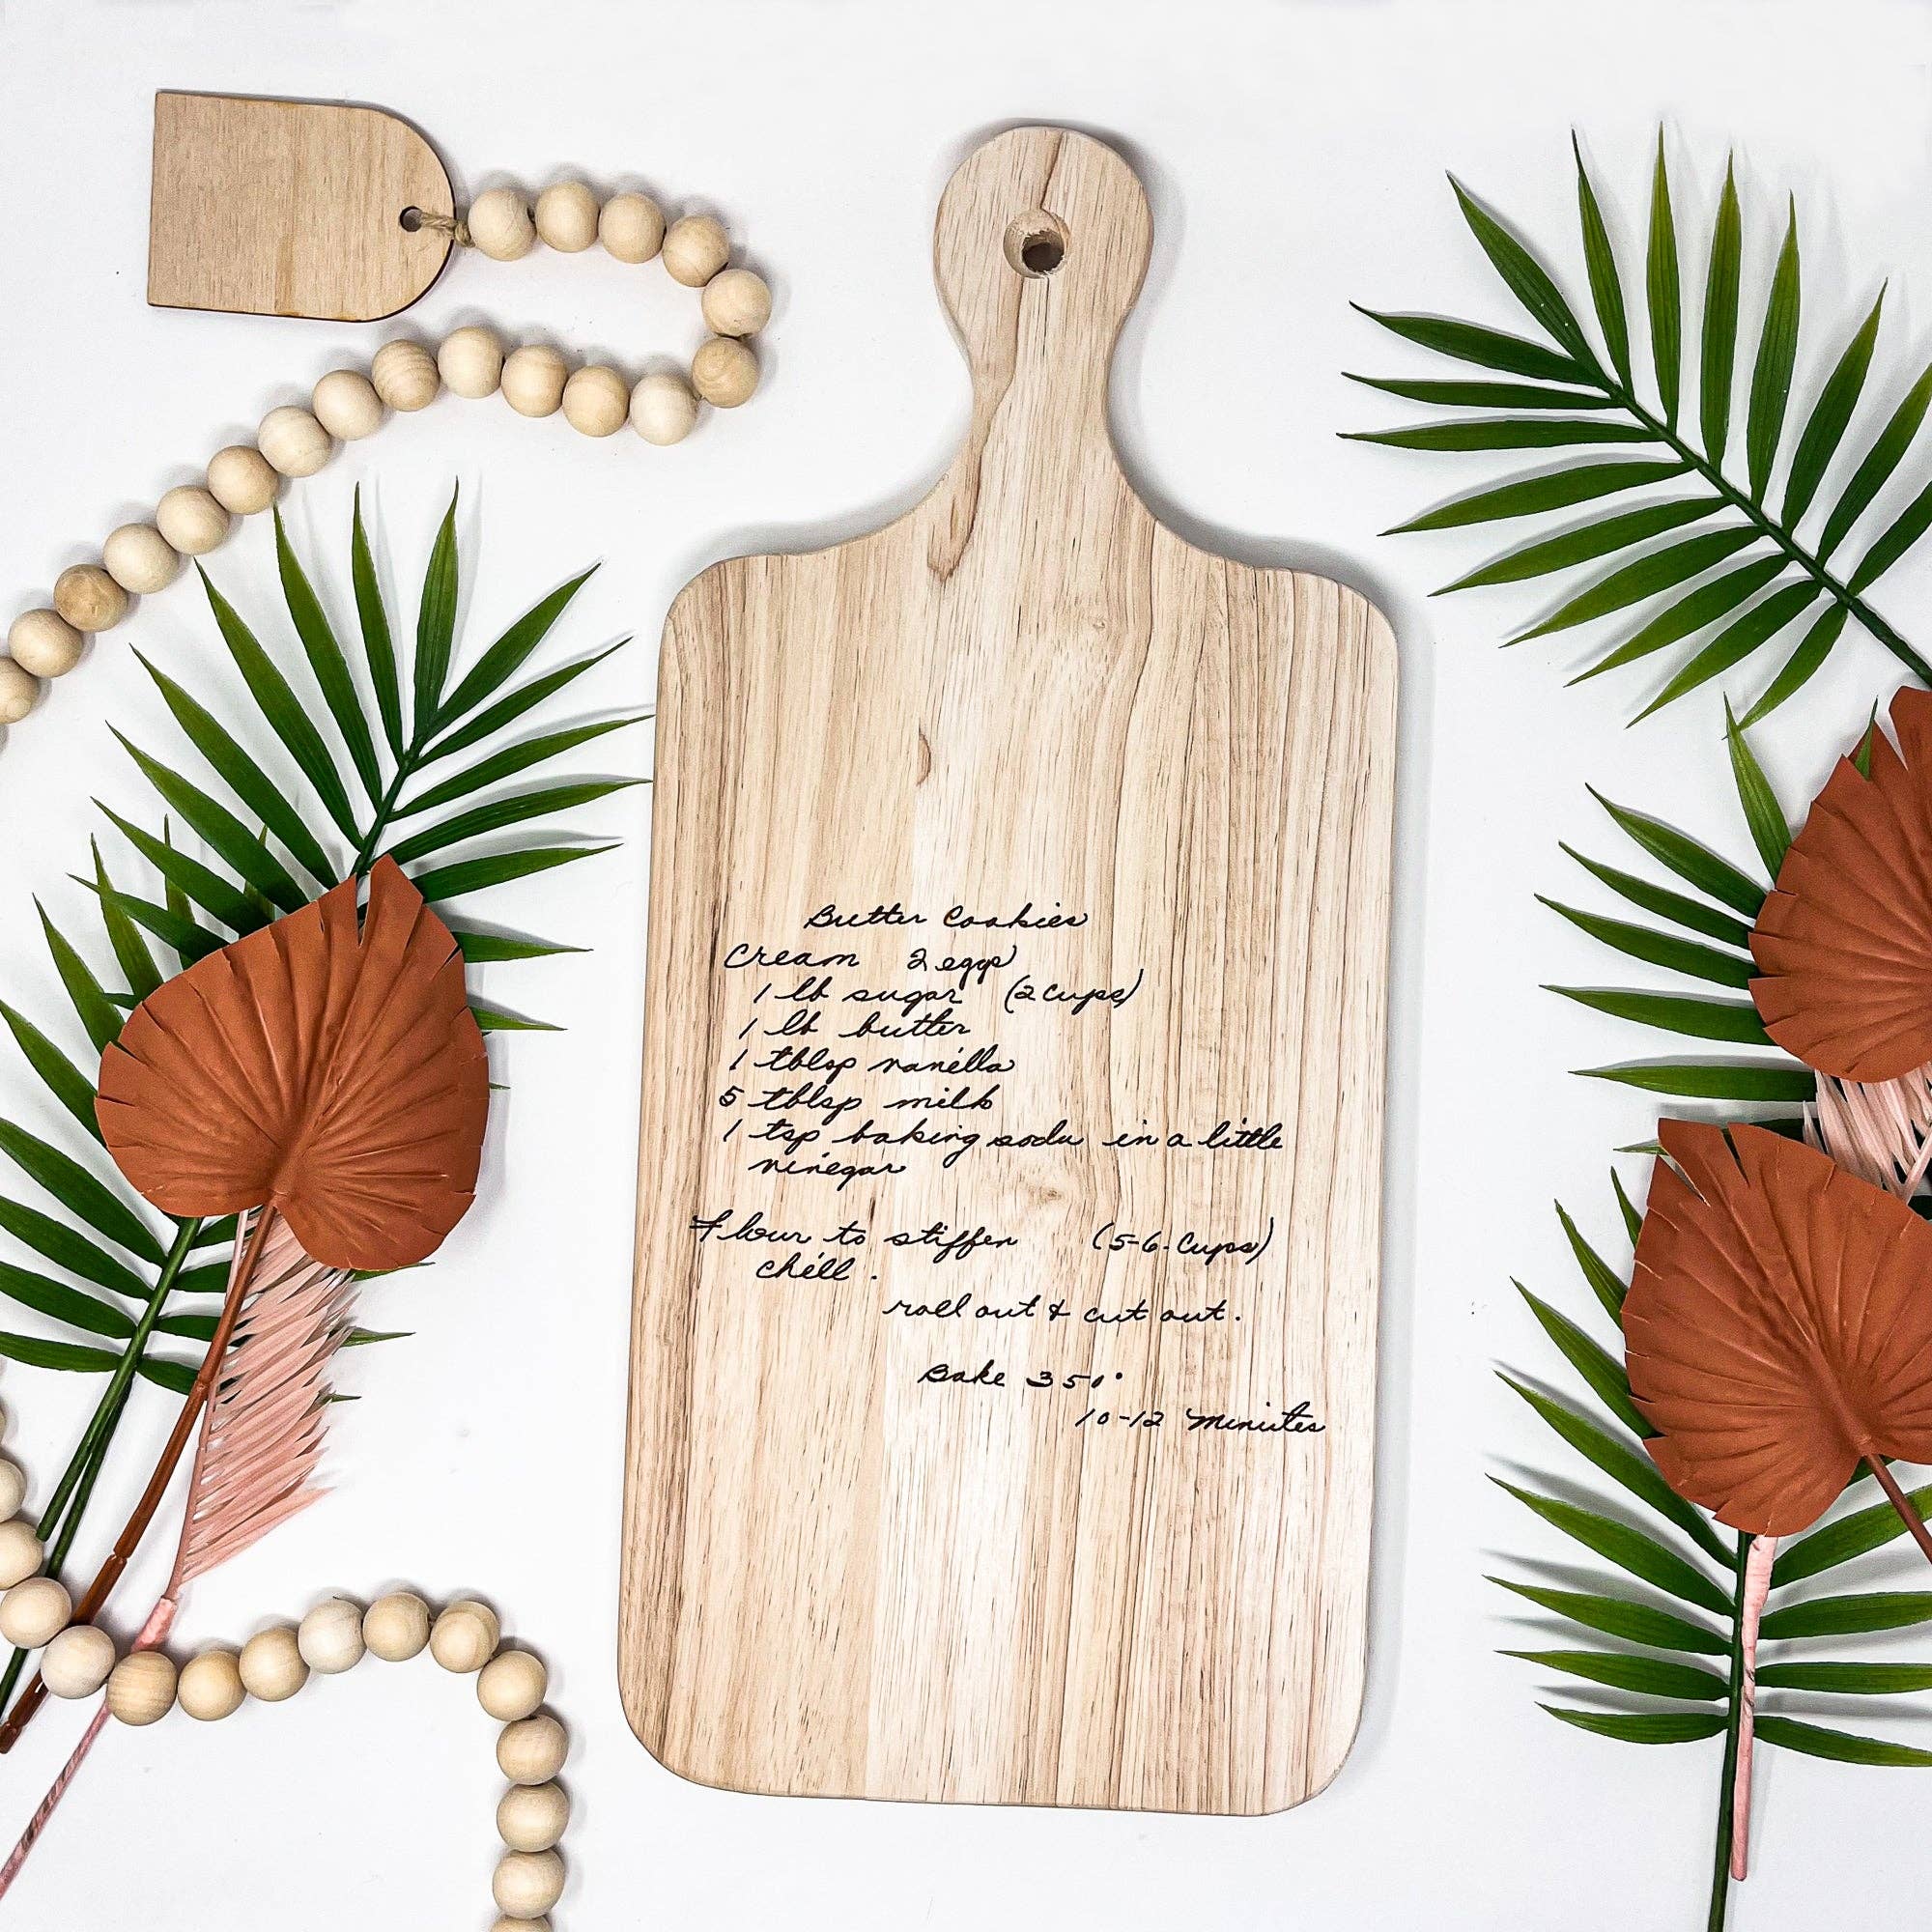 Butter Cookies
Cream 2 eggs
1 lb sugar (2 cups)
1 lb butter
1 tblsp vanilla
5 tblsp milk
1 tsp baking soda in a little
vinegar
Flour to stiffen (5-6 Cups)
chill.
roll out & cut out.
Bake 350°
10-12 Minutes